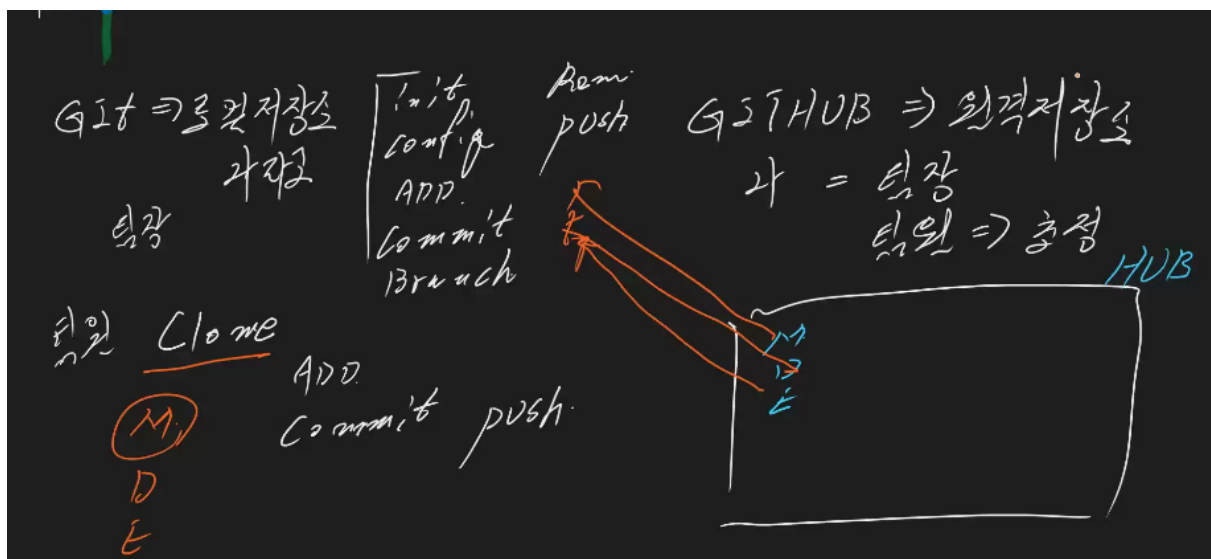 GIt => 로컬저장소
각자로
팀장
init
config
ADD.
commit
Branch
Rem.
push
GITHUB => 원격저장소
각 = 팀장
팀원 => 초청
HUB
M
D
E
팀원 Clone
ADD.
Commit push.
M.
D
E